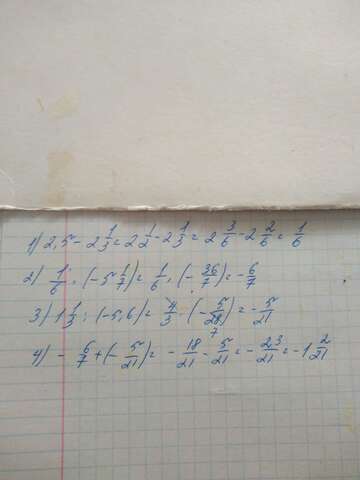 1) 2,5 - 2 1/3 = 2 1/2 - 2 1/3 = 2 3/6 - 2 2/6 = 1/6
2) 1/6 · (-5 1/7) = 1/6 · (- 36/7) = - 6/7
3) 1 1/3 : (-5,6) = 4/3 · (- 5/28) = - 5/21
7
4) - 6/7 + (- 5/21) = - 18/21 - 5/21 = - 23/21 = - 1 2/21